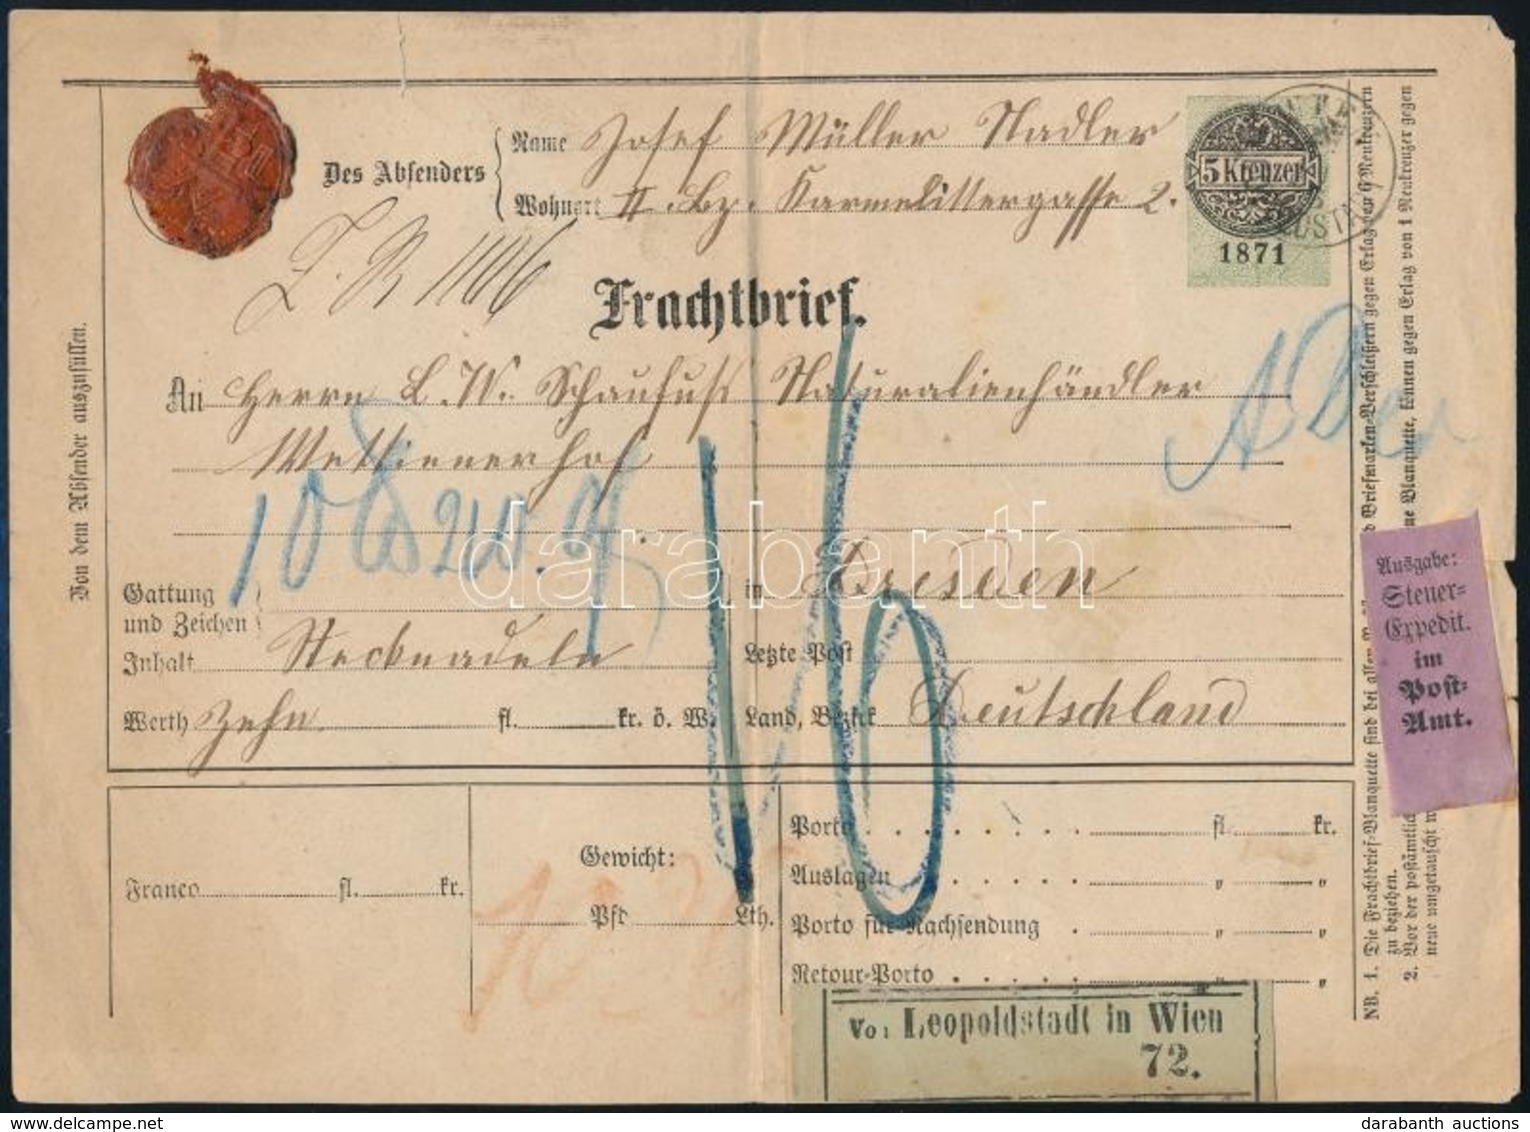 Des Absenders
Name Josef Müller Nadler
Wohnort II. Bz. Karmelittergasse 2.
5 Kreuzer
1871
Frachtbrief.
An Herrn L. W. Schaufuss Naturalienhändler
in Dresden
Gattung
und Zeichen
Inhalt Stecknadeln
Letzte Post
Werth Zehn fl. kr. ö. W.
Land, Bezirk Deutschland
Von dem Absender auszufüllen.
Franco fl. kr.
Gewicht:
Pfd Lth.
Porto fl. kr.
Auslagen " "
Porto für Nachsendung " "
Retour-Porto " "
Von: Leopoldstadt in Wien
72.
Ausgabe:
Steuer-
Expedit.
im
Post-
Amt.
NB. 1. Die Frachtbrief-Blanquette sind bei allen Briefmarken-Verschleißern gegen Erlag von 6 Neukreuzern
zu beziehen.
2. Vor der postämtlich Blanquette, können gegen Erlag von 1 Neukreuzer gegen
neue umgetauscht
darabanth
darabanth auctions
delcampe.net